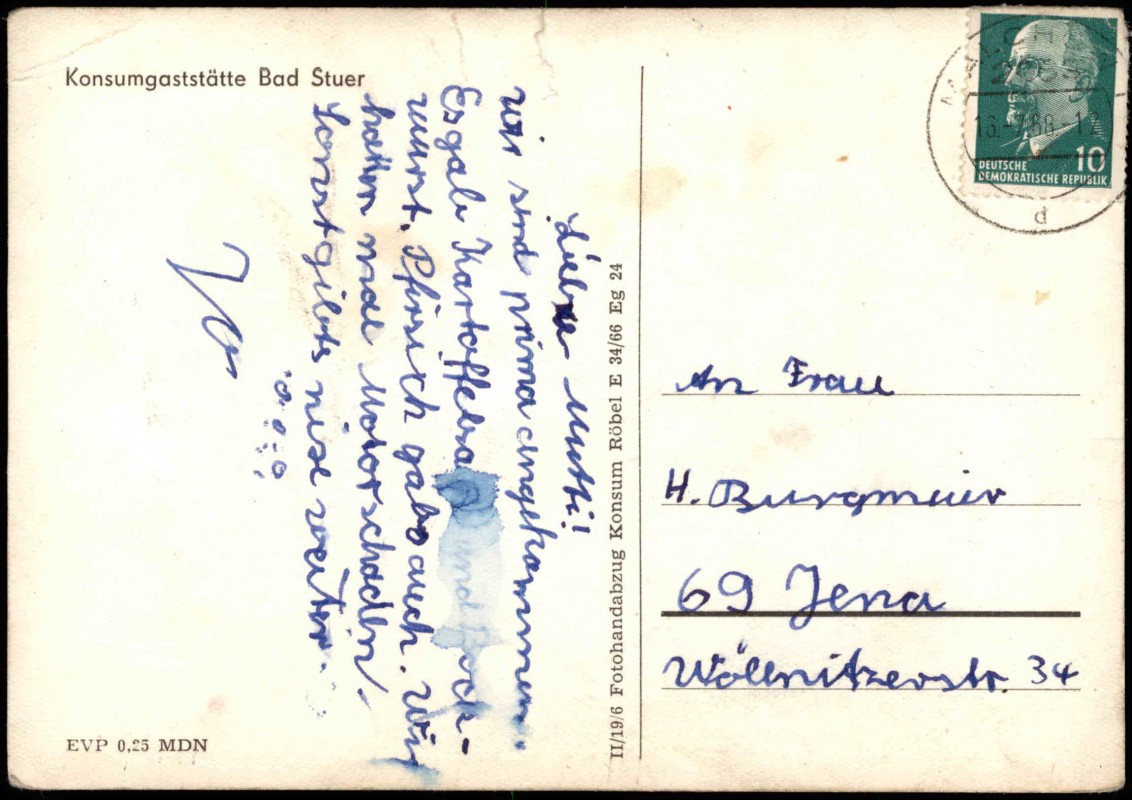 Konsumgaststätte Bad Stuer
Liebe Mutti!
wir sind prima angekommen.
Es gab Kartoffelsa und Bock-
wurst. Pfirsich gabs auch. Wir
hatten mal Motorschaden.
Sonst gibts nise weiter.
EVP 0,25 MDN
II/19/6 Fotohandabzug Konsum Röbel E 34/66 Eg 24
DEUTSCHE
DEMOKRATISCHE REPUBLIK
10
d
An Frau
H. Burgmeier
69 Jena
Wöllnitzerstr. 34